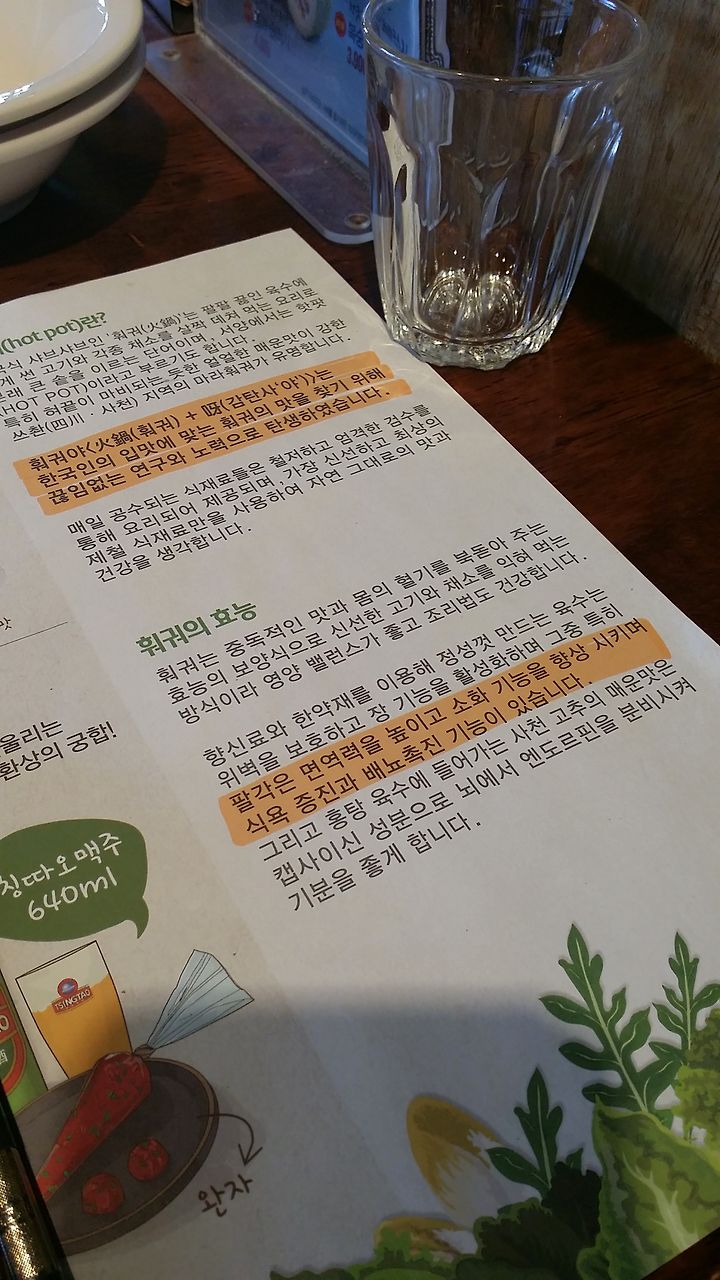 (hot pot)란?
식 샤브샤브인 '훠궈(火鍋)'는 팔팔 끓인 육수에
게 썬 고기와 각종 채소를 살짝 데쳐 먹는 요리로
래 큰 솥을 이르는 단어이며, 서양에서는 핫팟
(HOT POT)이라고 부르기도 합니다.
특히 혀끝이 마비되는 듯한 얼얼한 매운맛이 강한
쓰촨(四川·사천) 지역의 마라훠궈가 유명합니다.
훠궈야<火鍋(훠궈) + 呀(감탄사'야')>는
한국인의 입맛에 맞는 훠궈의 맛을 찾기 위해
끊임없는 연구와 노력으로 탄생하였습니다.
매일 공수되는 식재료들은 철저하고 엄격한 검수를
통해 요리되어 제공되며, 가장 신선하고 최상의
제철 식재료만을 사용하여 자연 그대로의 맛과
건강을 생각합니다.
훠궈의 효능
훠궈는 중독적인 맛과 몸의 혈기를 북돋아 주는
효능의 보양식으로 신선한 고기와 채소를 익혀 먹는
방식이라 영양 밸런스가 좋고 조리법도 건강합니다.
향신료와 한약재를 이용해 정성껏 만드는 육수는
위벽을 보호하고 장 기능을 활성화하며 그중 특히
팔각은 면역력을 높이고 소화 기능을 향상 시키며
식욕 증진과 배뇨촉진 기능이 있습니다.
그리고 홍탕 육수에 들어가는 사천 고추의 매운맛은
캡사이신 성분으로 뇌에서 엔도르핀을 분비시켜
기분을 좋게 합니다.
맛
울리는
환상의 궁합!
칭따오맥주
640ml
TSINGTAO
완자